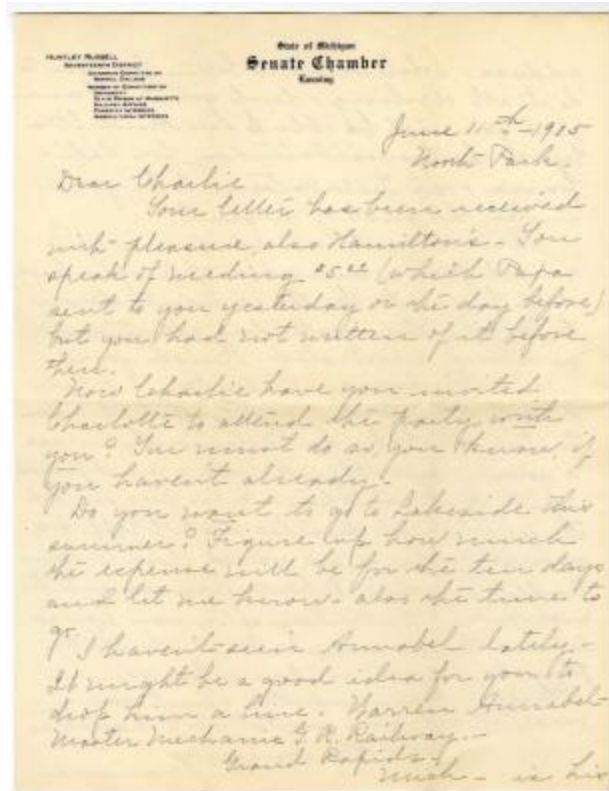 HUNTLEY RUSSELL
SEVENTEENTH DISTRICT
State of Michigan
Senate Chamber
Lansing
June 11th - 1905
North Park.
Dear Charlie
Your letter has been received
with pleasure also Hamilton's - You
speak of needing $5.00 (which Papa
sent to you yesterday or the day before)
but you had not written of it before
then.
Now Charlie have you invited
Charlotte to attend the party with
you? You must do so, you know, if
you haven't already.
Do you want to go to Lakeside this
summer? Figure up how much
the expense will be for the ten days
and let me know - also the time to
go. I haven't seen Annabel lately -
It might be a good idea for you to
drop him a line. Warren Annabel -
Master Mechanic G. R. Railway. -
Grand Rapids.
Mich - is his